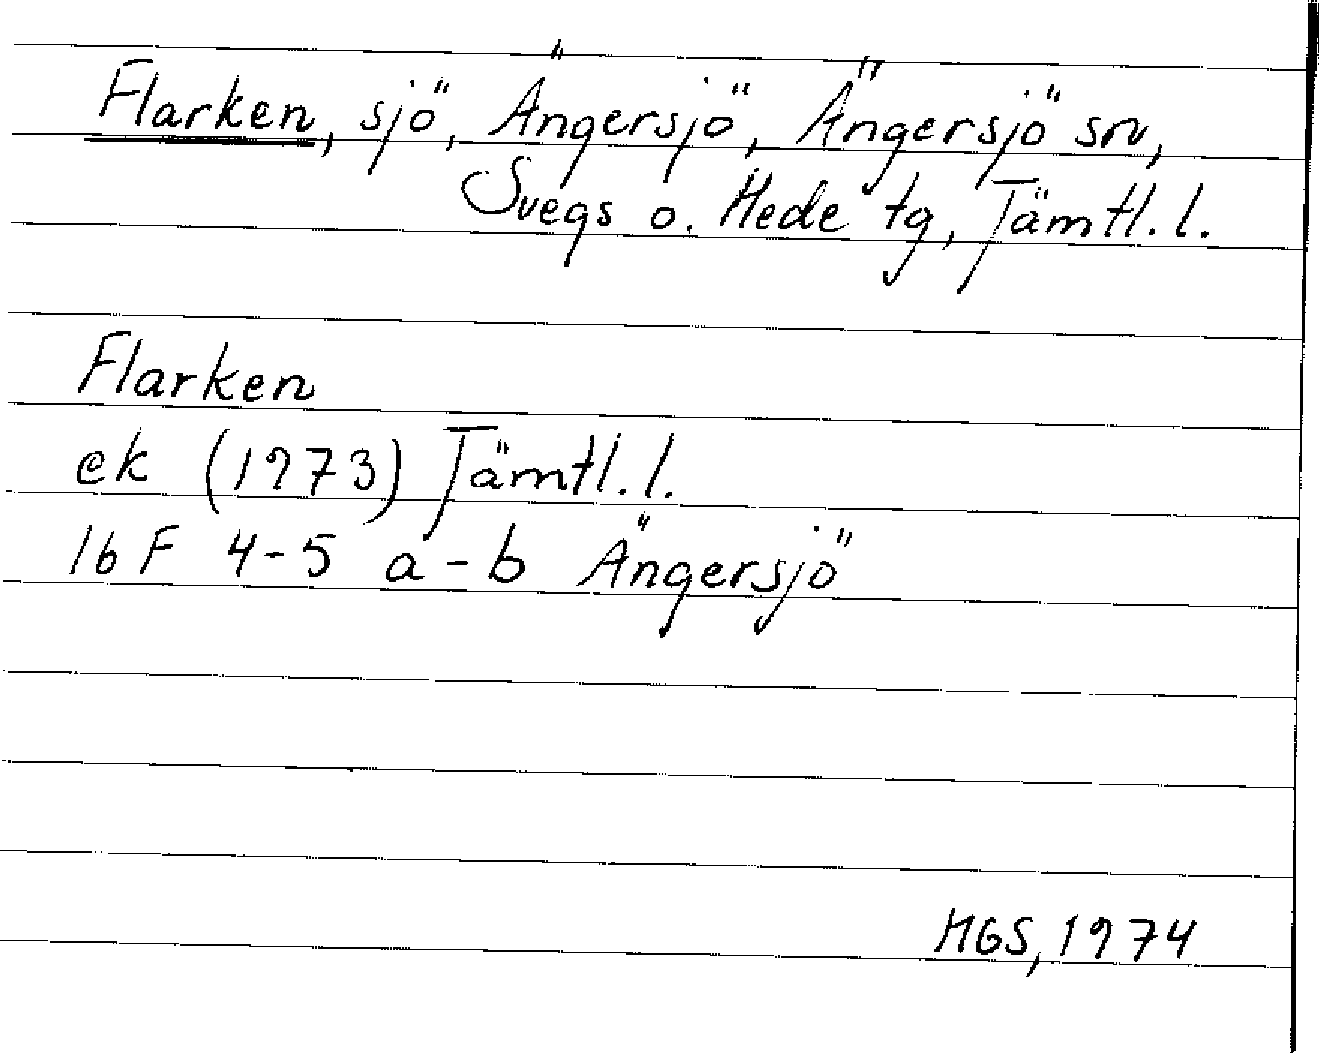 Flarken, sjö, Ängersjö, Ängersjö sn,
Svegs o. Hede tg, Jämtl. l.
Flarken
ek (1973) Jämtl. l.
16 F 4-5 a-b Ängersjö
MGS, 1974